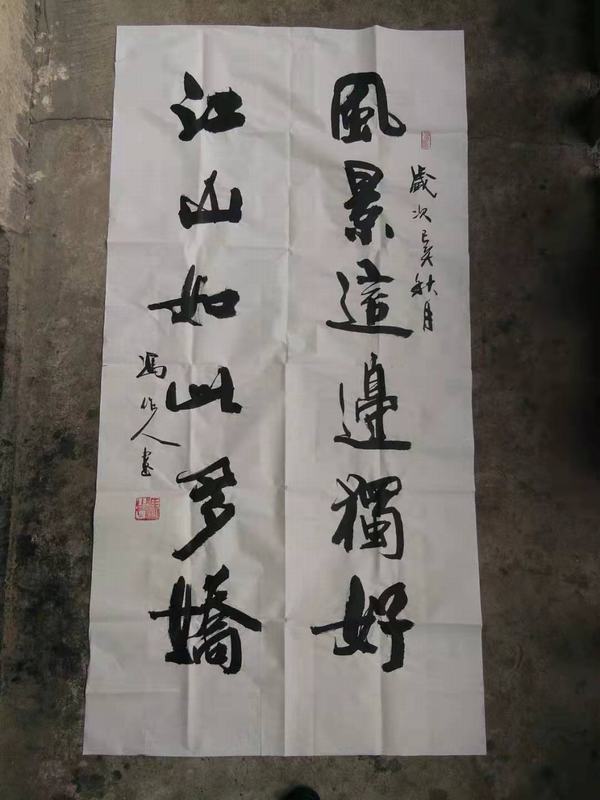 歲次己亥秋月
風景這邊獨好
江山如此多嬌
馮作人書